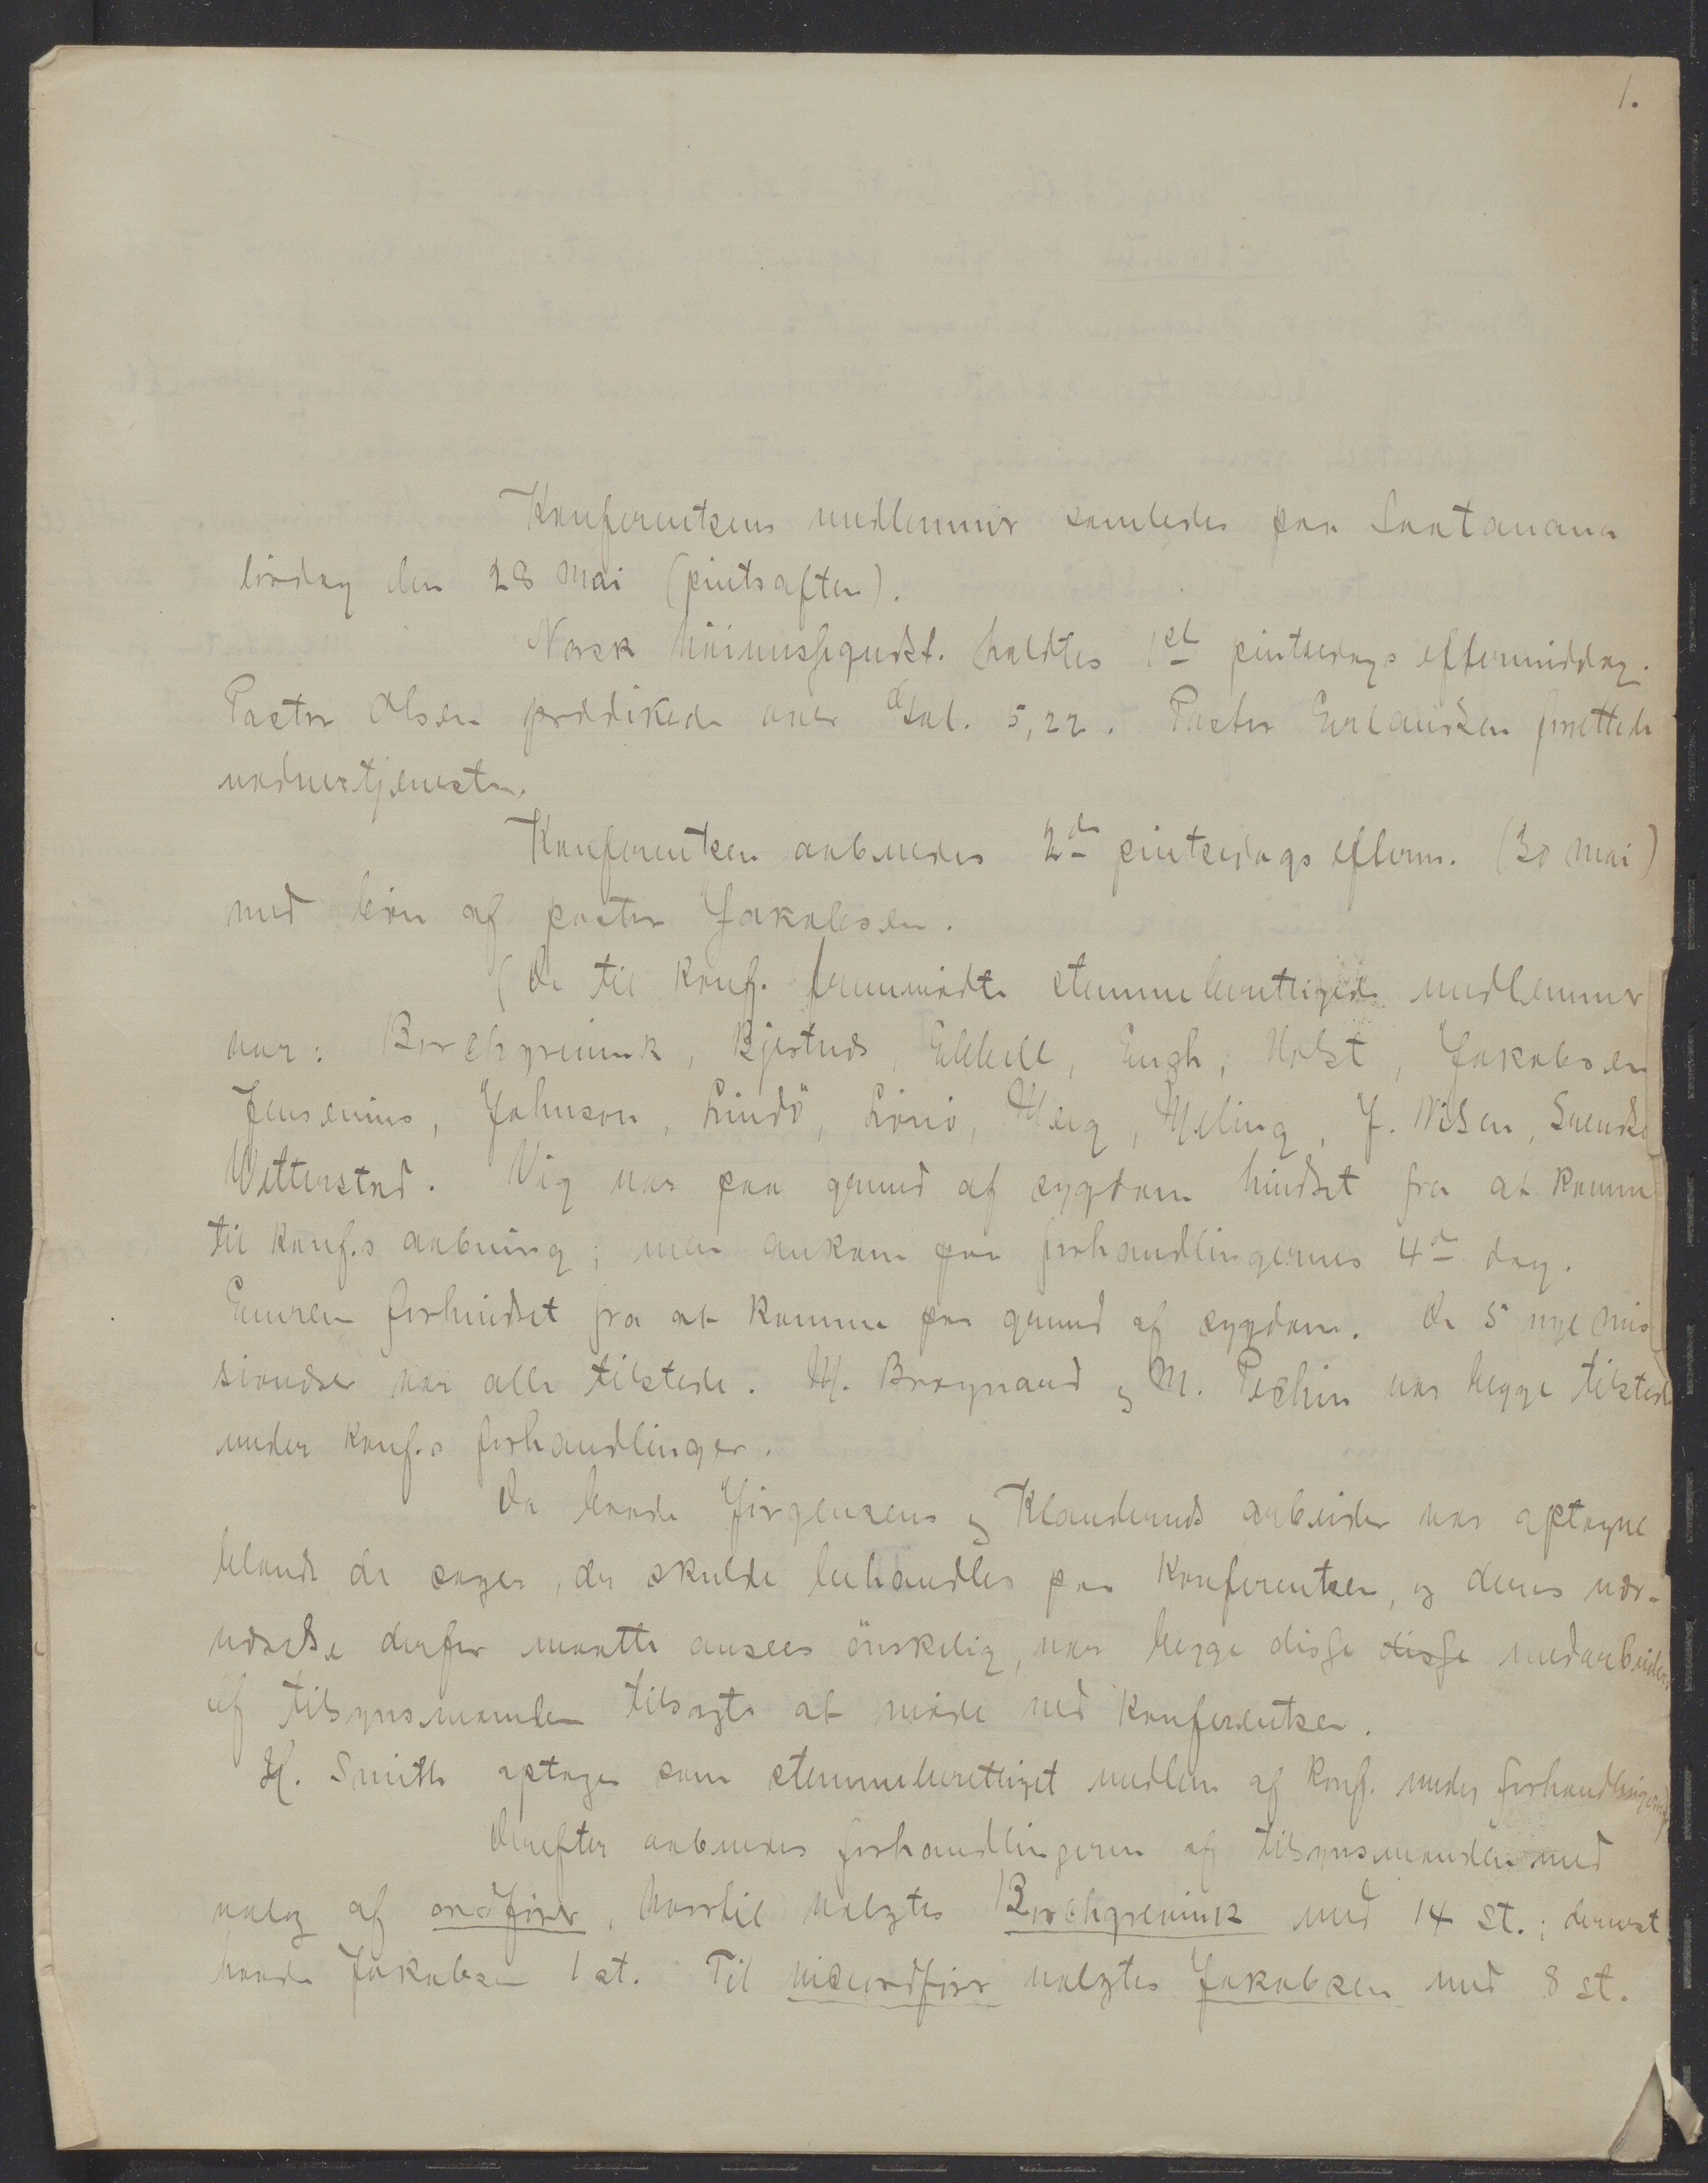 1.
Konferentsens medlemmer samledes paa Soatanana
lördag den 28 Mai (pintsaften).
Norsk höimessegudst. holdtes 1ste pintsedags eftermiddag.
Pastor Olsen prædikede over Gal. 5,22. Pastor Erlandsen forrettede
nadvertjenesten.
Konferentsen aabnedes 2den pintsedags efterm. (30 Mai)
med bön af pastor Jakobsen.
(De til konf. fremmödte stemmeberettigede medlemmer
var: Borchgrevink, Bjertnæs, Ebbell, Engh, Holst, Jakobsen
Jensenius, Johnson, Lindö, Lönö, Meeg, Meling, J. Nilsen, Svendsen
Wetterstad. Vig var paa grund af sygdom hindret fra at komme
til konf.s aabning; men ankom paa forhandlingernes 4de dag.
Einrem forhindret fra at komme paa grund af sygdom. De 5 nye mis
sionærer var alle tilstede. M. Brognard og M. Pechin var begge tilstede
under konf.s forhandlinger.
Da baade Jörgensens og Klanderuds arbeider var optagne
blandt de sager, der skulde behandles paa Konferentsen, og deres nær-
værelse derfor maatte ansees önskelig, var begge disse disse medarbeidere
af tilsynsmanden tilsagte at möde ved Konferentsen.
H. Smith optages som stemmeberettiget medlem af konf. under forhandlingerne)
Derefter aabnedes forhandlingerne af tilsynsmanden med
valg af ordförer, hvortil valgtes Borchgrevink med 14 st.; dernæst
havde Jakobsen 1 st. Til viceordförer valgtes Jakobsen med 8 st.